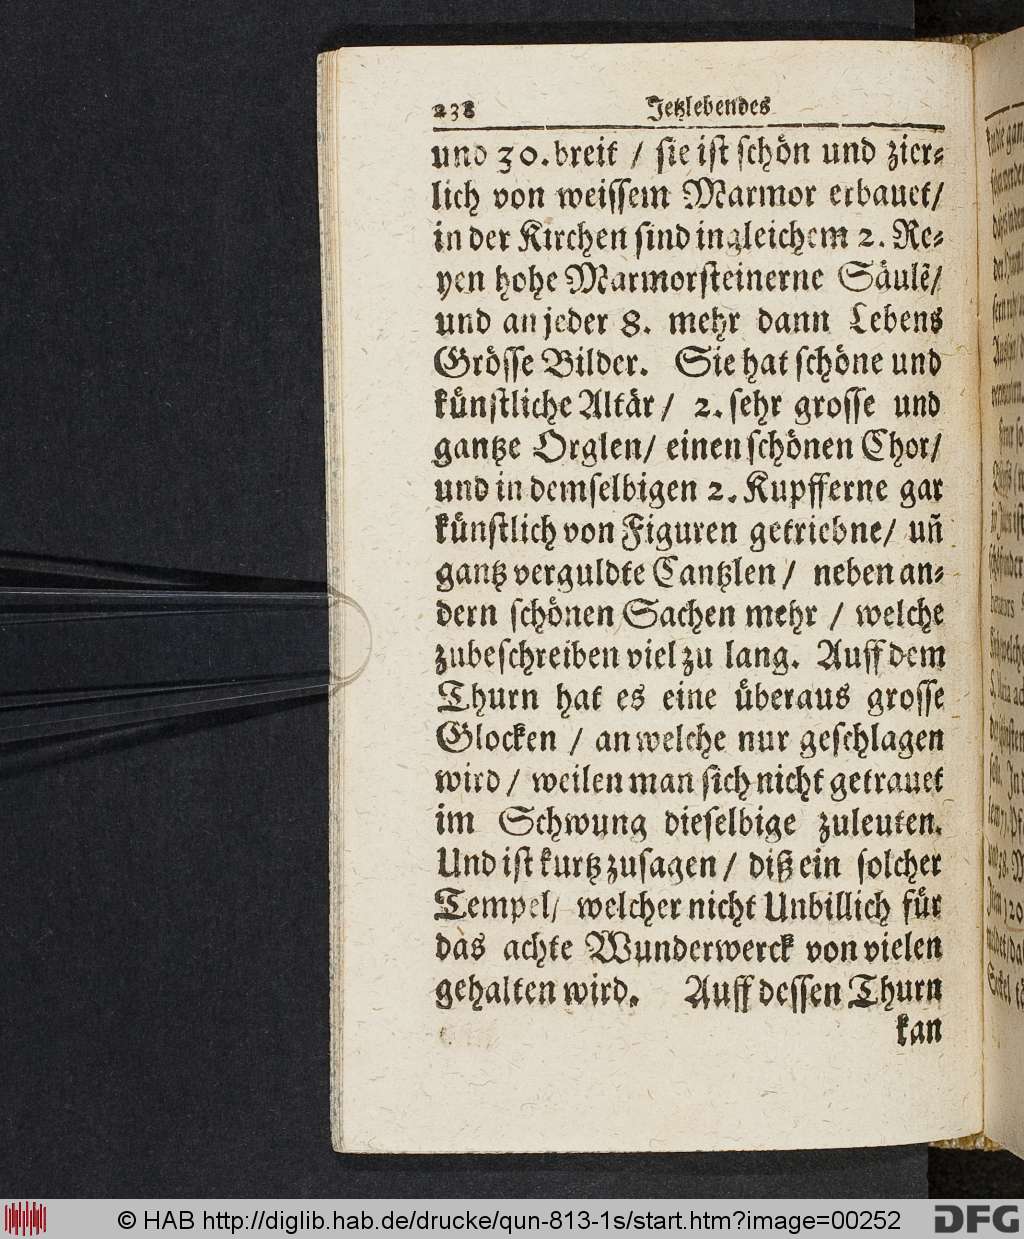 238 Jetzlebendes
und 30. breit / sie ist schön und zier-
lich von weissem Marmor erbauet/
in der Kirchen sind ingleichem 2. Re-
yen hohe Marmorsteinerne Säulẽ/
und an jeder 8. mehr dann Lebens
Grösse Bilder. Sie hat schöne und
künstliche Altär / 2. sehr grosse und
gantze Orglen/ einen schönen Chor/
und in demselbigen 2. Kupfferne gar
künstlich von Figuren getriebne/ uñ
gantz verguldte Cantzlen / neben an-
dern schönen Sachen mehr / welche
zubeschreiben viel zu lang. Auff dem
Thurn hat es eine überaus grosse
Glocken / an welche nur geschlagen
wird / weilen man sich nicht getrauet
im Schwung dieselbige zuleuten.
Und ist kurtz zusagen / diß ein solcher
Tempel/ welcher nicht Unbillich für
das achte Wunderwerck von vielen
gehalten wird. Auff dessen Thurn
kan
© HAB http://diglib.hab.de/drucke/qun-813-1s/start.htm?image=00252
DFG